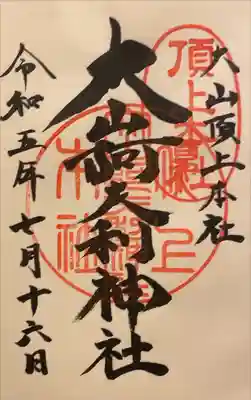 大山頂上本社
大山阿夫利神社
令和五年七月十六日